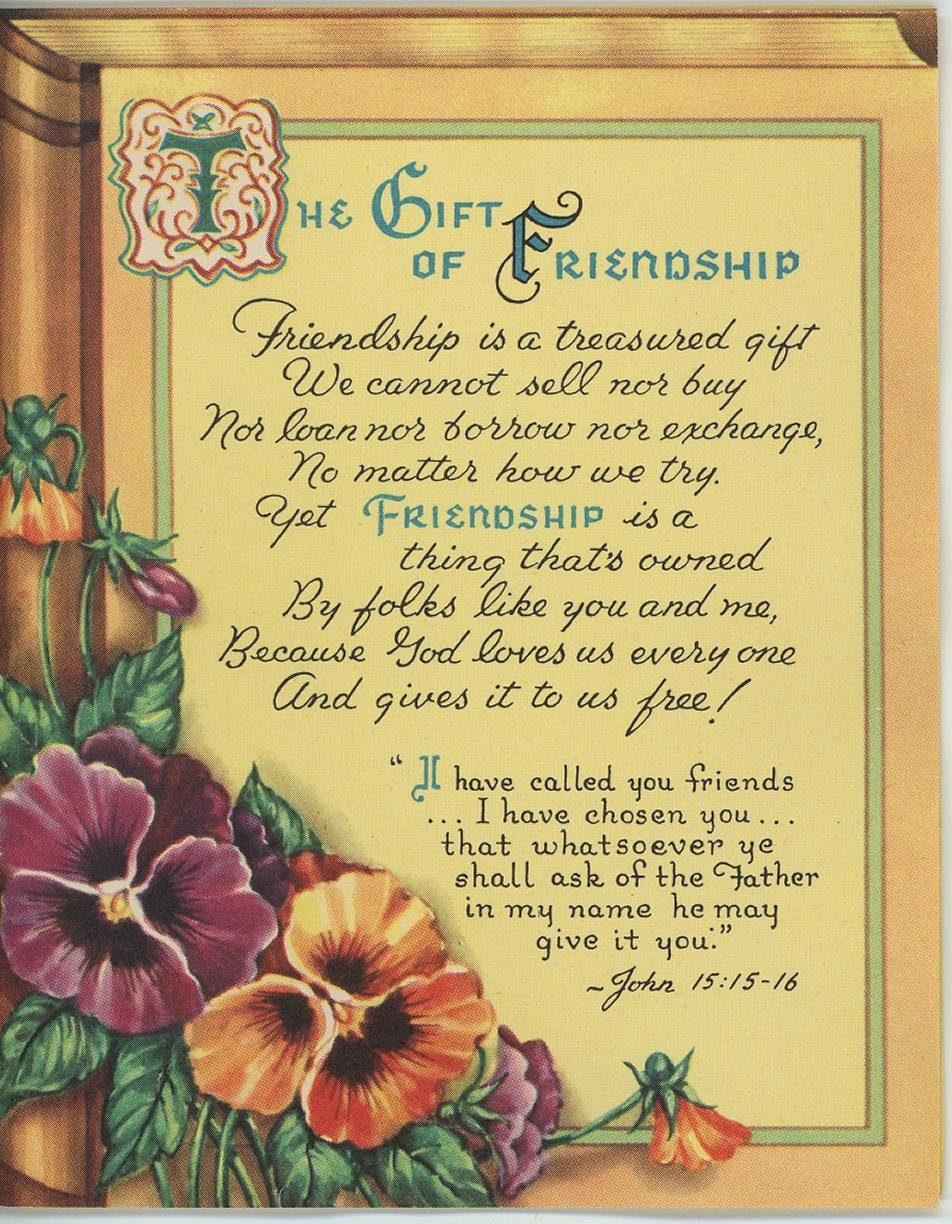 The Gift
of Friendship
Friendship is a treasured gift
We cannot sell nor buy
Nor loan nor borrow nor exchange,
No matter how we try.
Yet Friendship is a
thing that's owned
By folks like you and me,
Because God loves us every one
And gives it to us free!
"I have called you friends
... I have chosen you...
that whatsoever ye
shall ask of the Father
in my name he may
give it you."
~John 15:15-16